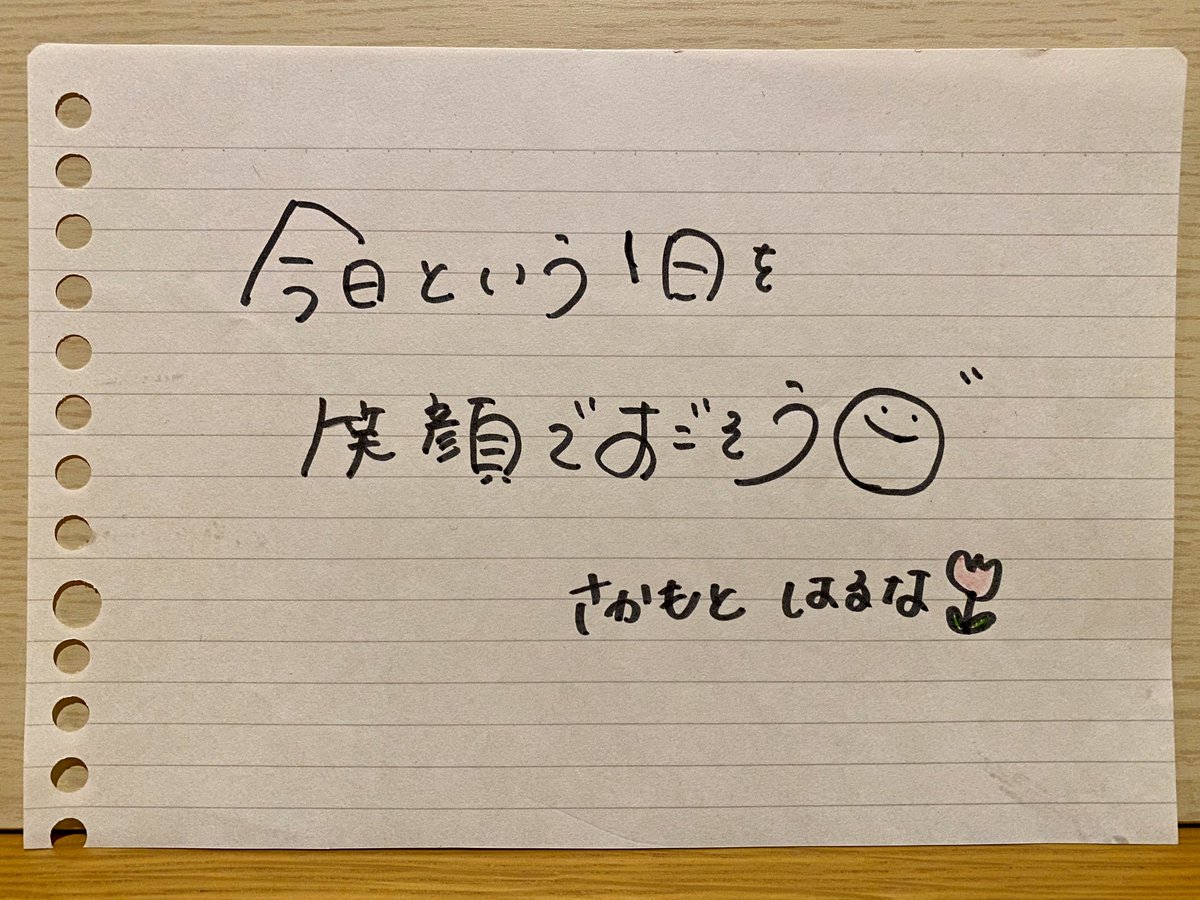 今日という1日を
笑顔ですごそう
さかもと はるな